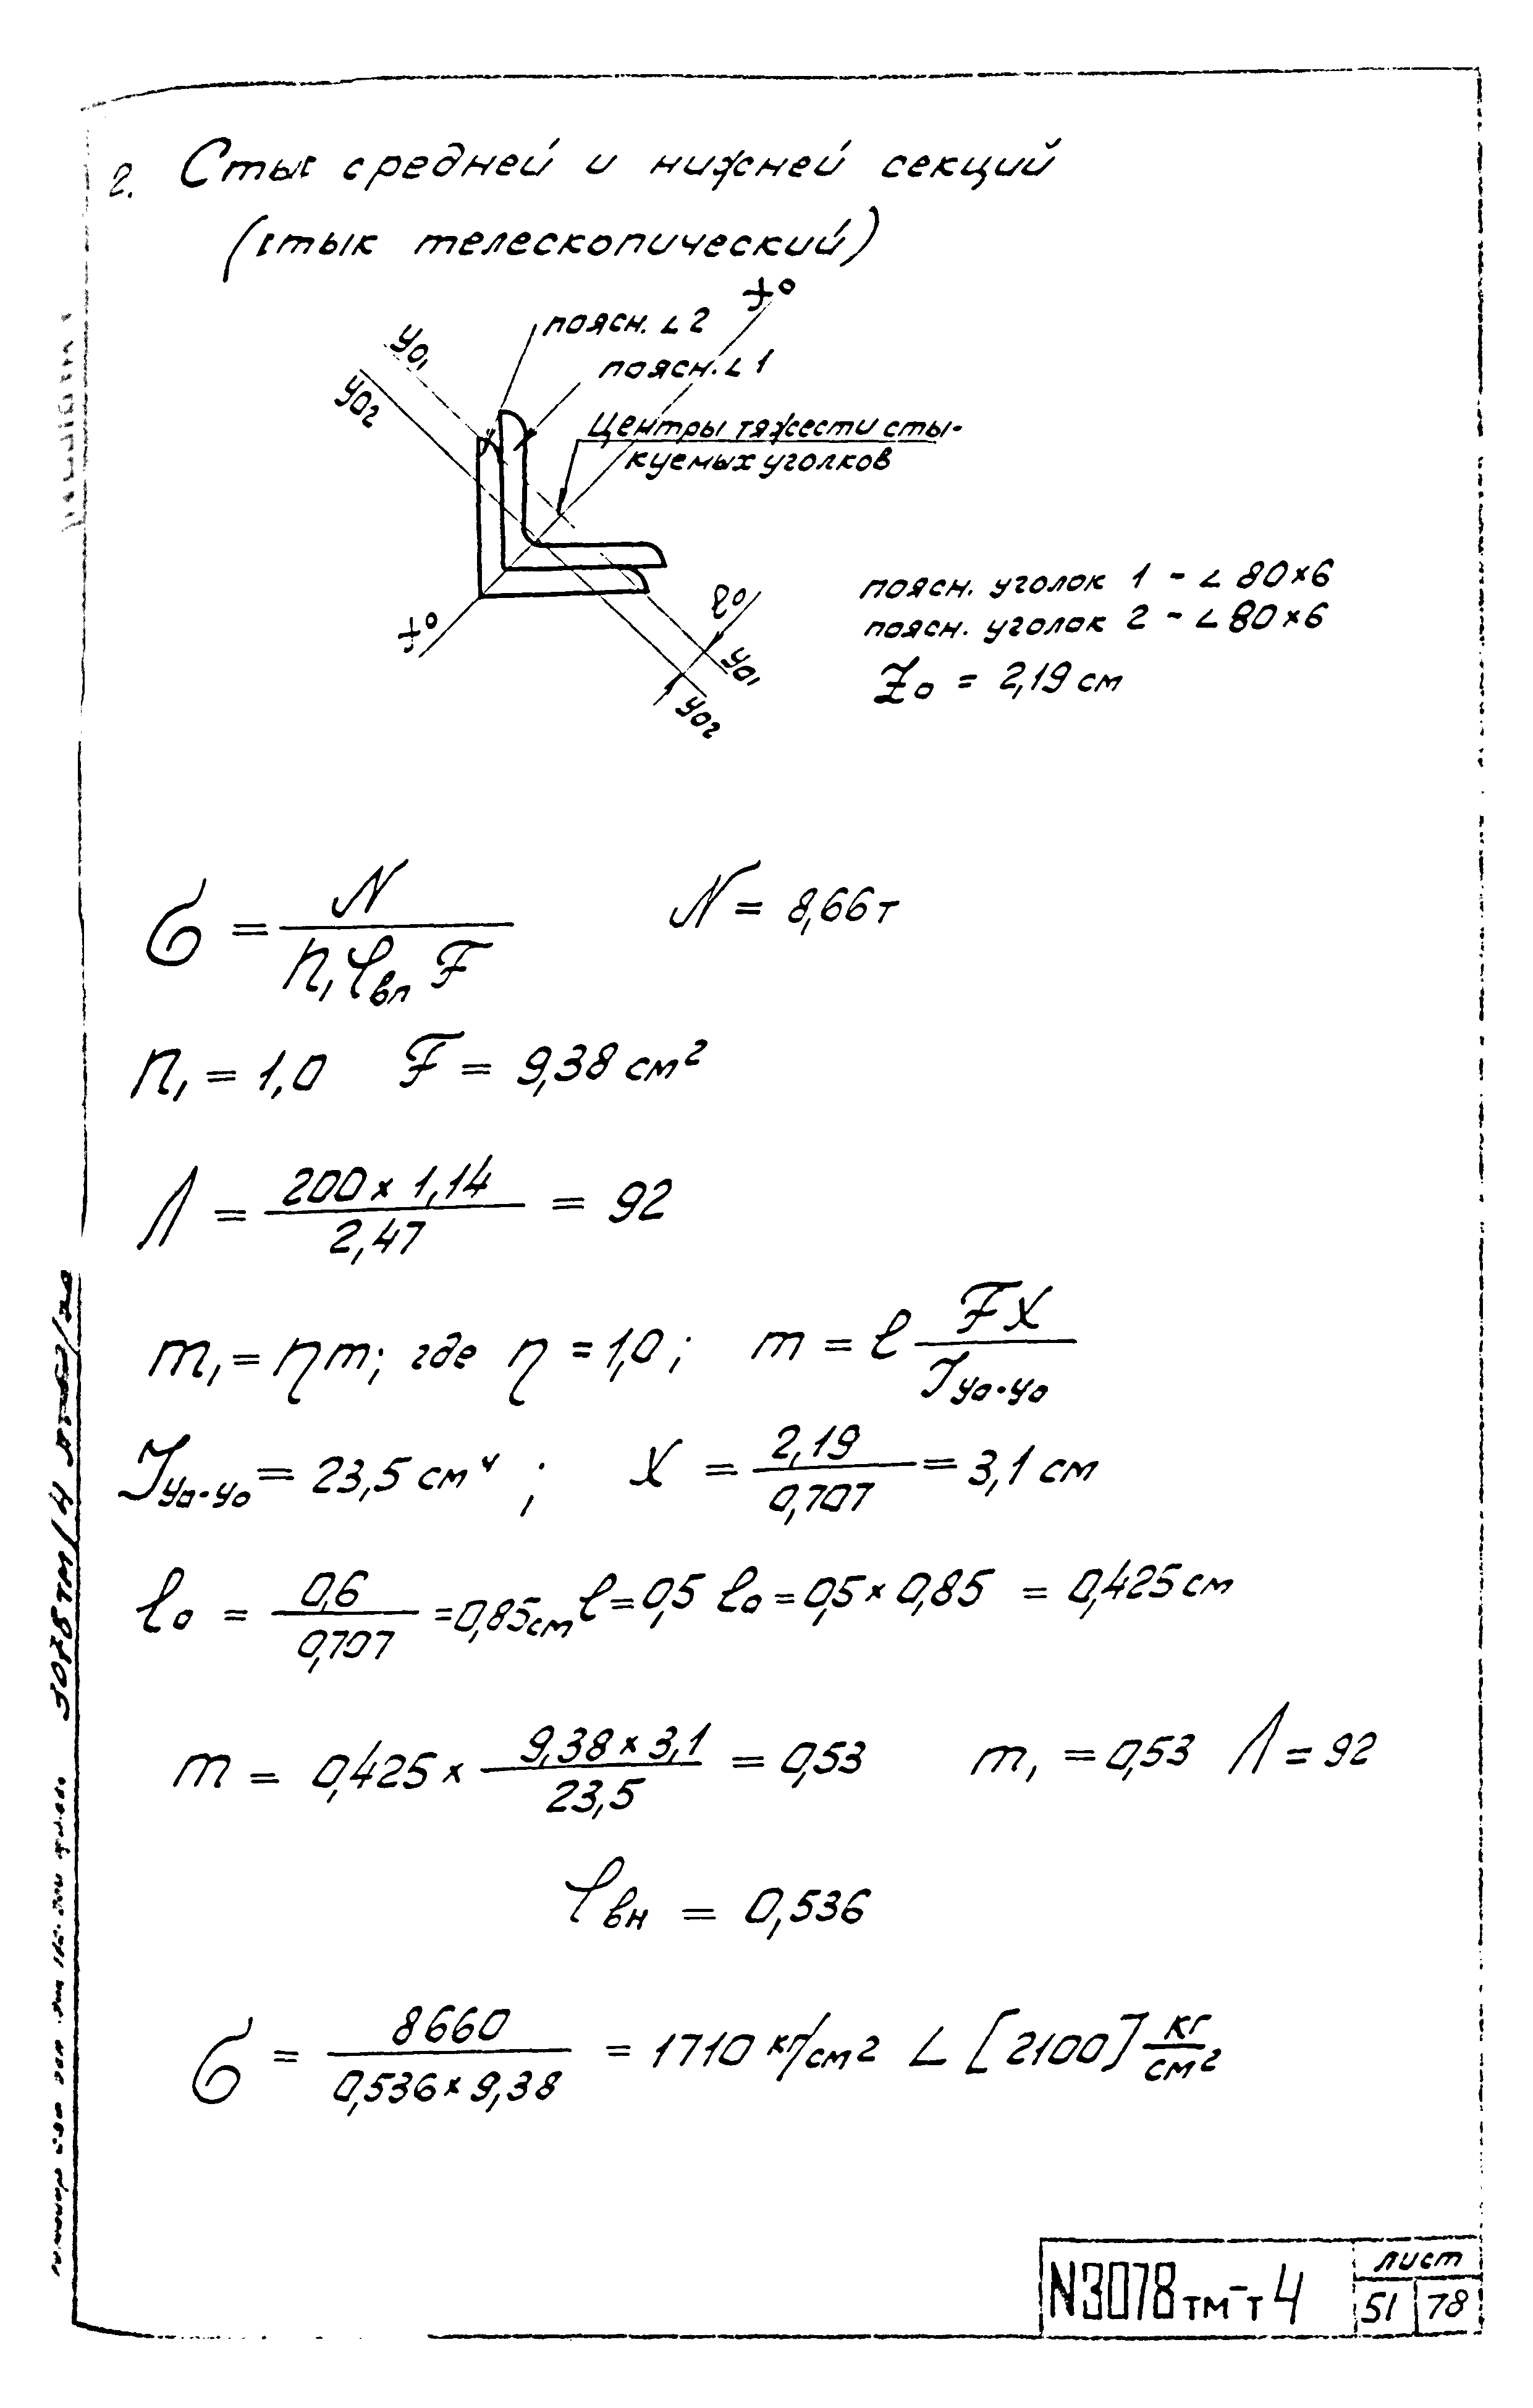 2. Стык средней и нижней секций
(стык телескопический)
x0
поясн. ∠2
y01
поясн. ∠1
y02
Центры тяжести сты-
куемых уголков
поясн. уголок 1 - ∠ 80×6
ℓ0
поясн. уголок 2 - ∠ 80×6
x0
y01
Z0 = 2,19 см
y02
σ = N / (n₁ φвп F)   N = 8,66 т
n₁ = 1,0   F = 9,38 см²
Λ = (200 × 1,14) / 2,47 = 92
m₁ = ηm; где η = 1,0; m = ℓ FX / Jy0-y0
Jy0-y0 = 23,5 см⁴ ; X = 2,19 / 0,707 = 3,1 см
ℓ0 = 0,6 / 0,707 = 0,85 см ℓ = 0,5 ℓ0 = 0,5 × 0,85 = 0,425 см
m = 0,425 × (9,38 × 3,1) / 23,5 = 0,53   m₁ = 0,53 Λ = 92
φвн = 0,536
σ = 8660 / (0,536 × 9,38) = 1710 кг/см² ∠ [2100] кг/см²
3078тм/4
N3078тм-т4
лист
51 78